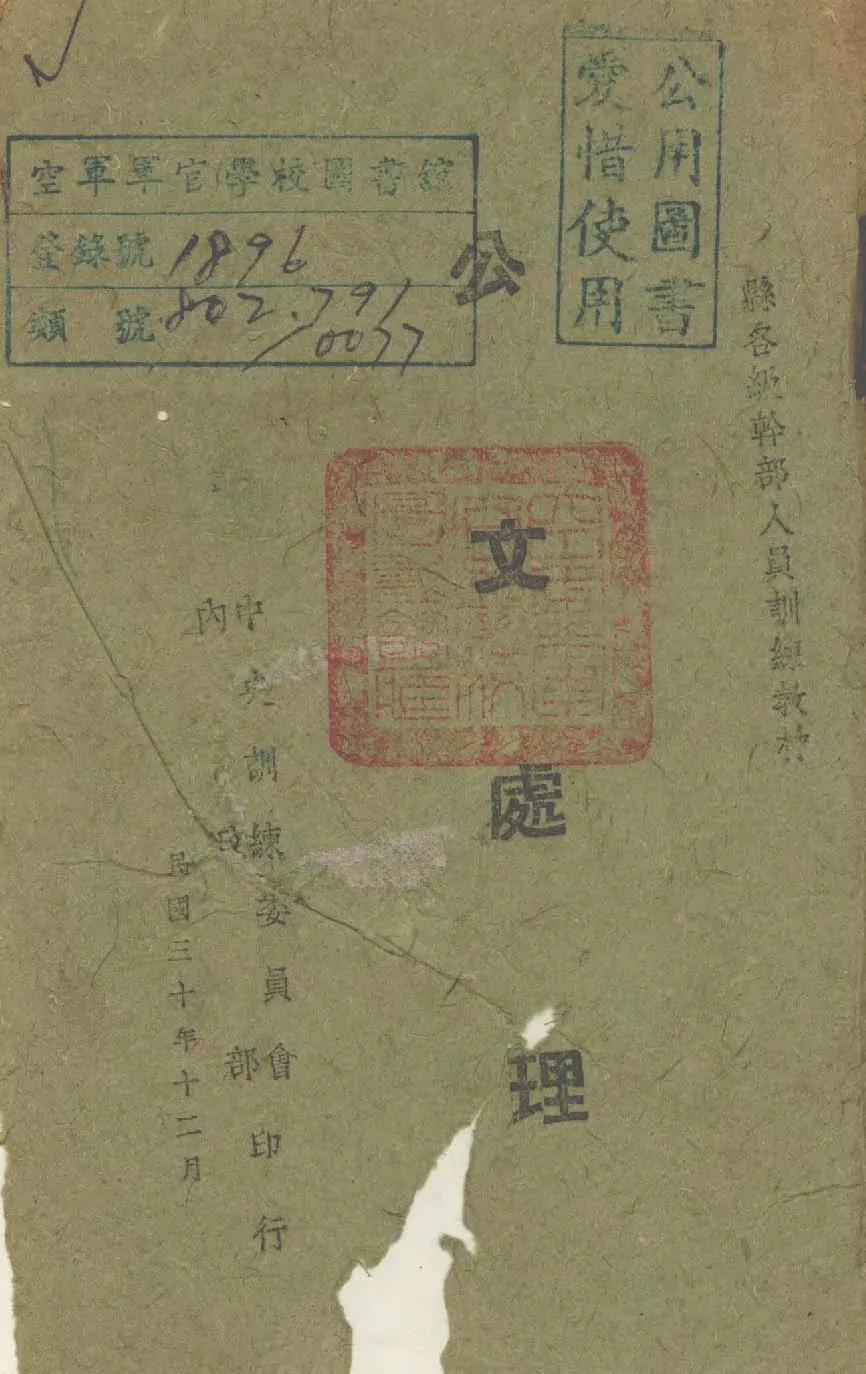 公用圖書
愛惜使用
空軍軍官學校圖書館
登錄號 1896
類號 802.791
/0077
縣各級幹部人員訓練教材
公文處理
中央訓練委員會
內政部
印行
民國三十年十二月